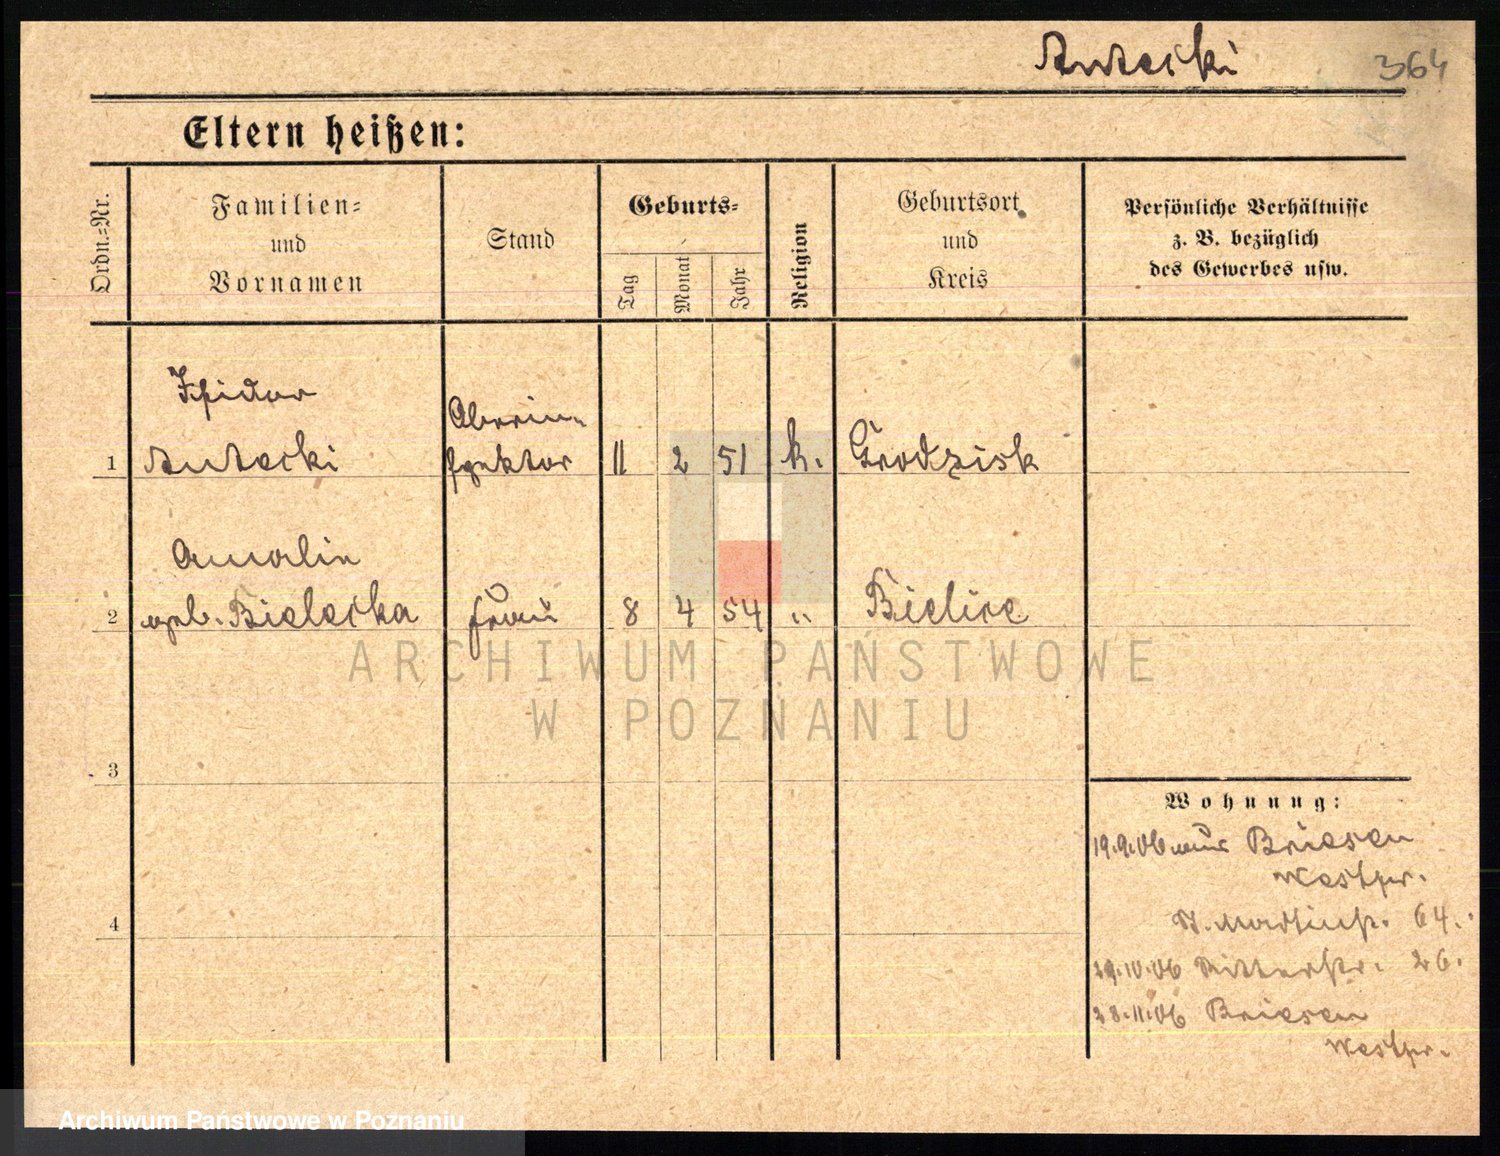 Antecki 364
Eltern heißen:
Ordn.=Nr.
Familien=
und
Vornamen
Stand
Geburts=
Tag
Monat
Jahr
Religion
Geburtsort
und
Kreis
Persönliche Verhältnisse
z. B. bezüglich
des Gewerbes usw.
Isidor Oberin=
1 Antecki spektor 11 2 51 k. Grodzisk
Amalie
2 geb. Bielecka Frau 8 4 54 " Bielice
3
4
Wohnung:
19.9.06 aus Briesen
Westpr.
St. Martinstr. 64.
29.10.06 Ritterstr. 26.
28.11.06 Briesen
Westpr.
ARCHIWUM PAŃSTWOWE
W POZNANIU
Archiwum Państwowe w Poznaniu